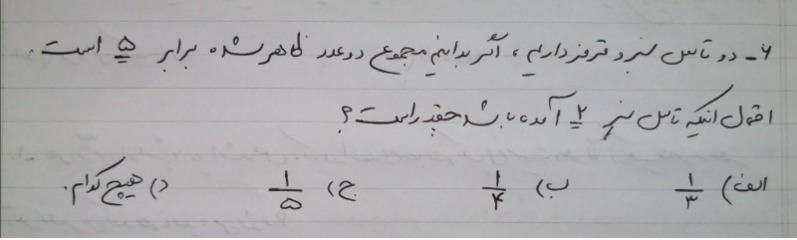 ۶- دو تاس سبز و قرمز داریم، اگر بدانیم مجموع دو عدد ظاهر شده برابر ۵ است.
احتمال اینکه تاس سبز ۲ آمده باشد چقدر است؟
الف) ۱/۳ ب) ۱/۴ ج) ۱/۵ د) هیچ کدام.